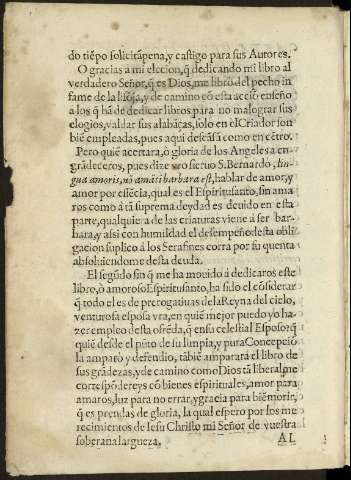 do tiẽpo solicitàpena, y castigo para sus Autores.
O gracias a mi eleccion, q̃ dedicando mi libro al
verdadero Señor, q̃ es Dios, me librò del pecho in
fame de la lisõja, y de camino cõ esta acciõ enseño
a los q̃ hã de dedicar libros para no malograr sus
elogios, valdar sus alabãças, solo en el Criador son
biẽ empleadas, pues aqui descãsã como en cẽtro.
Pero quiẽ acertara, ò gloria de los Angeles a en
grãdeceros, pues dize vro sieruo S. Bernardo, lin
gua amoris, nõ amãti barbara est, hablar de amor, y
amor por essẽcia, qual es el Espiritusanto, sin ama
ros como à tã suprema deydad es deuido en esta
parte, qualquiera de las criaturas viene à ser bar-
bara, y assi con humildad el desempeño desta obli
gacion suplico à los Serafines corra por su quenta
absoluiendome desta deuda.
El segũdo fin q̃ me ha mouido à dedicaros este
libro, ò amoroso Espiritusanto, ha sido el cõsiderar
q̃ todo el es de prerogatiuas de la Reyna del cielo,
venturosa esposa vra, en quiẽ mejor puedo yo ha-
zer empleo desta ofrẽda, q̃ en su celestial Esposo q̃
quiẽ desde el pũto de su limpia, y pura Concepciõ
la amparò y defendio, tãbiẽ ampararà el libro de
sus grãdezas, y de camino como Dios tã liberal me
correspõdereys cõ bienes espirituales, amor para
amaros, luz para no errar, y gracia para biẽ morir,
q̃ es prendas de gloria, la qual espero por los me
recimientos de Iesu Christo mi Señor de vuestra
soberaña largueza.
AL